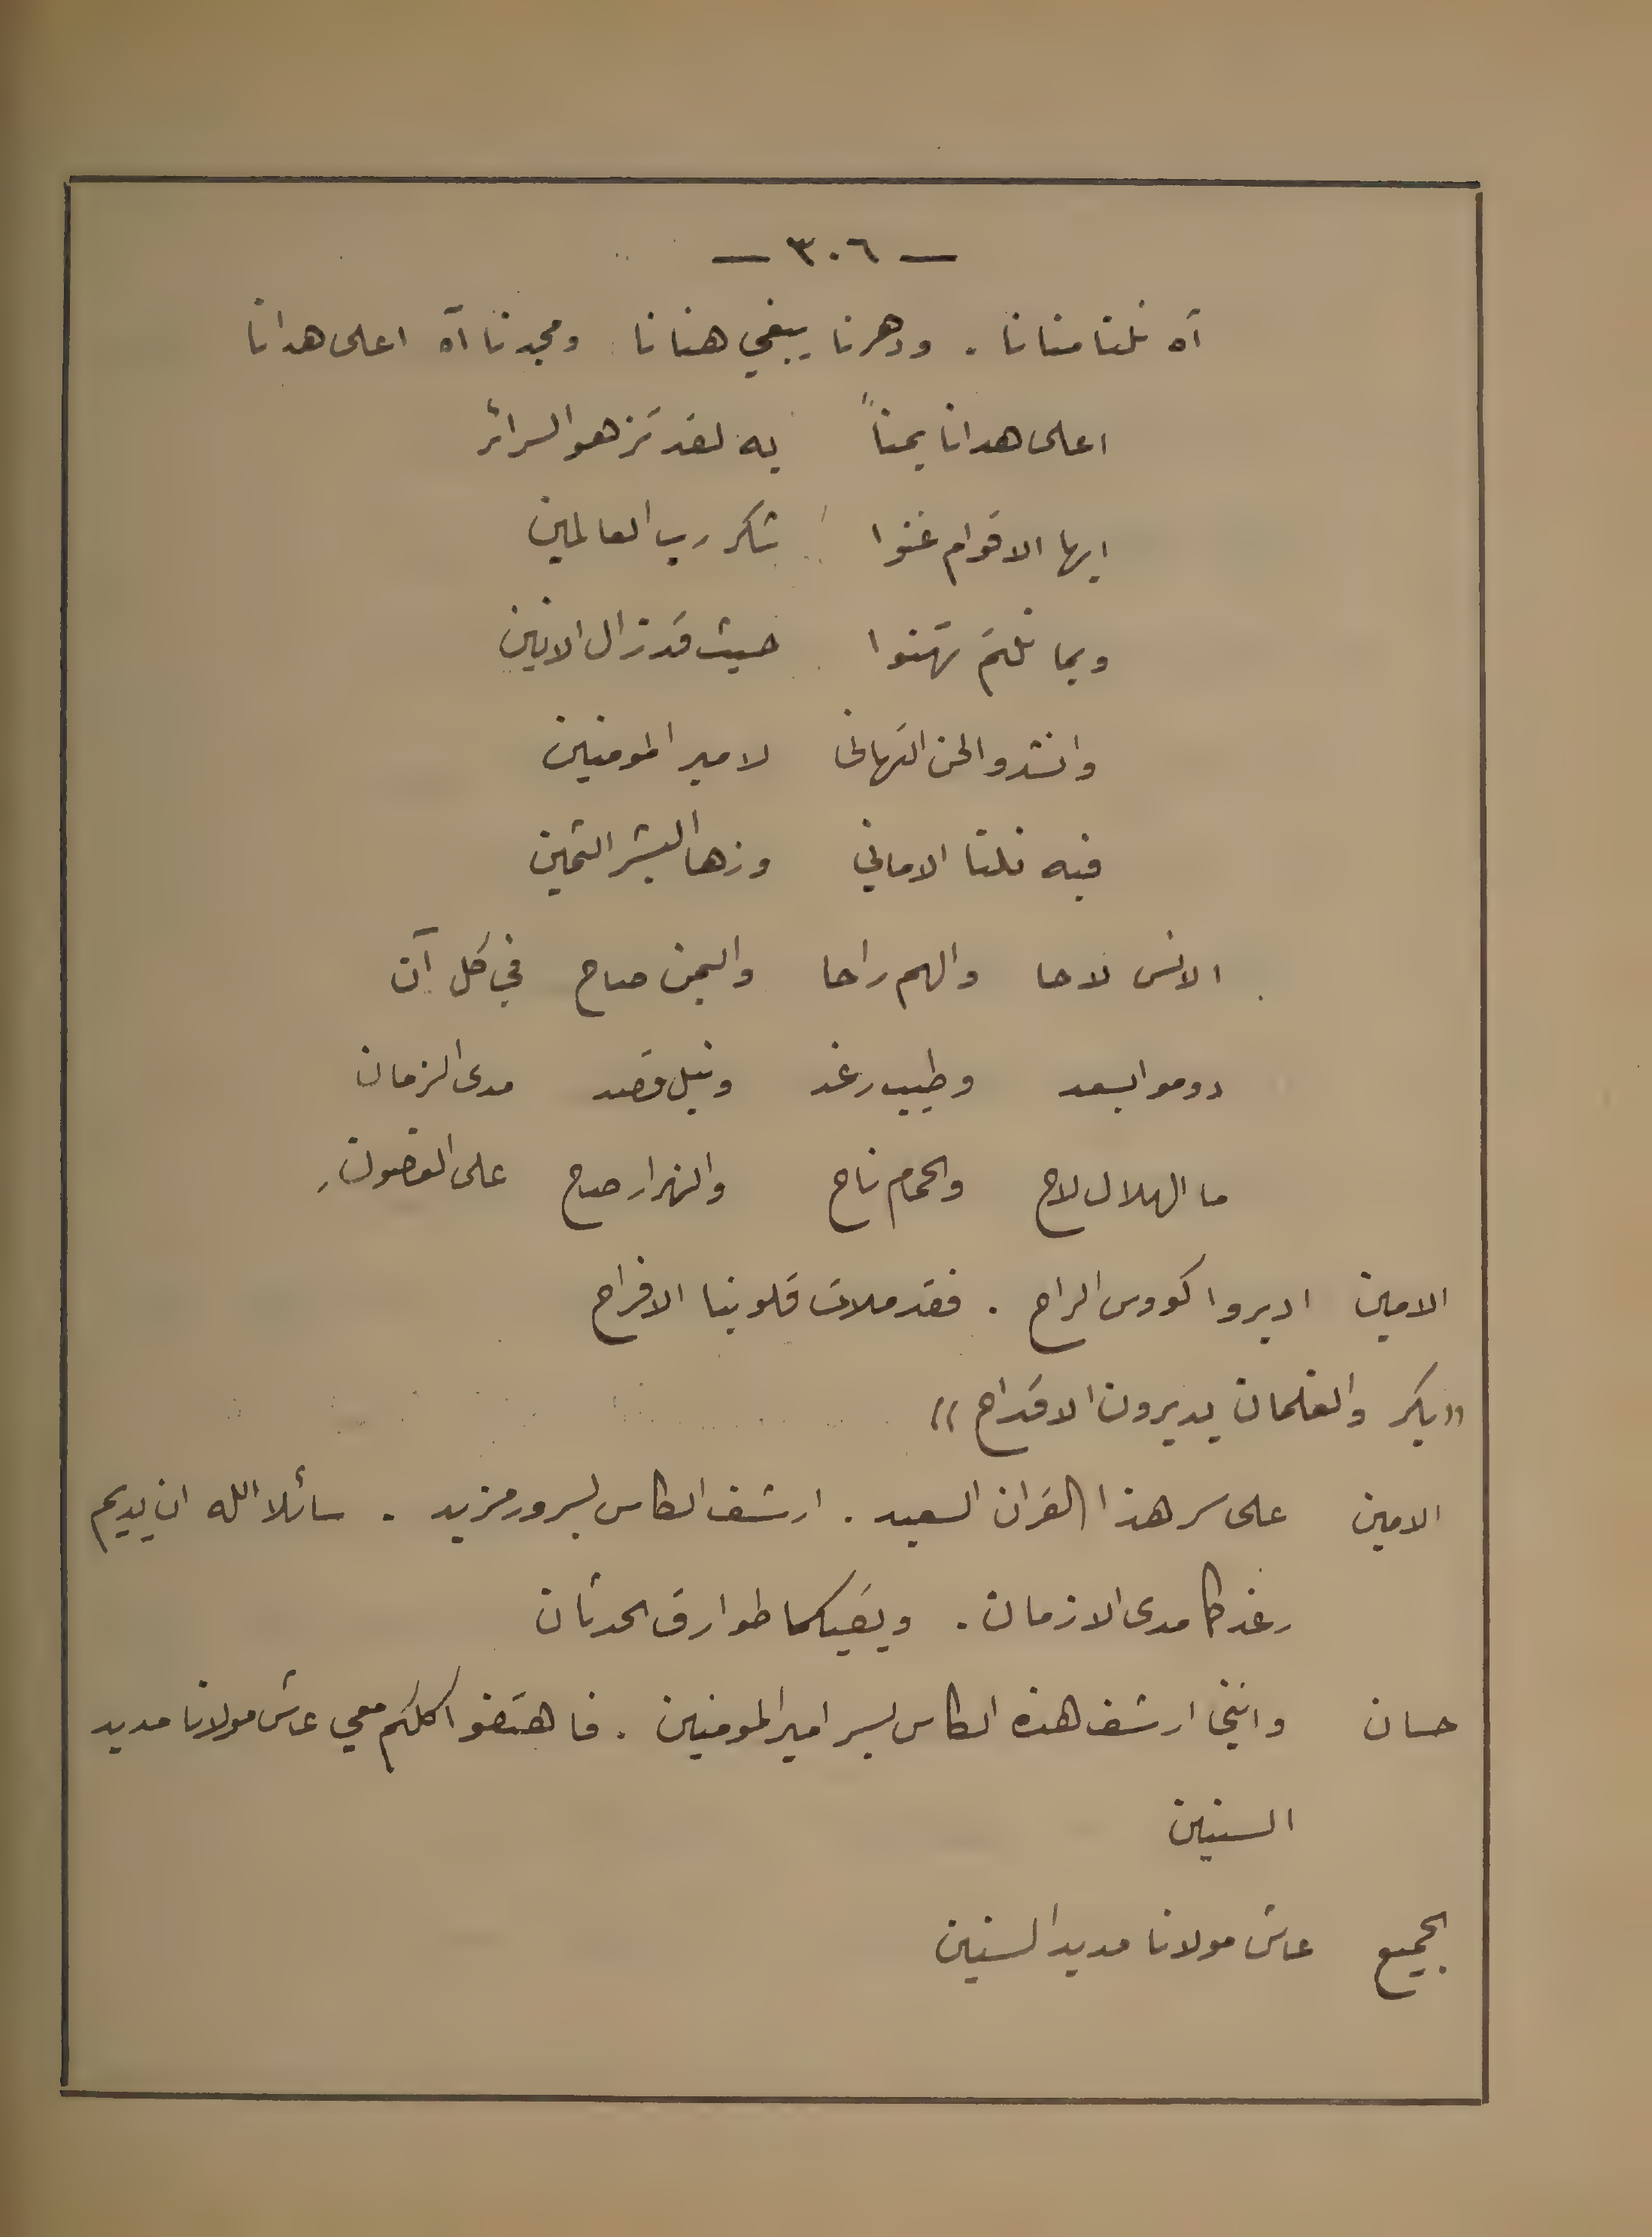 — ٣٠٦ —
آه نلنا منانا . ودهرنا يبغي هنانا ومجدنا آه اعلى هدانا
اعلى هدانا يمناً به لقد تزهو السرائر
ايها الاقوام غنوا شكر رب العالمين
وبما نلتم تهنوا حيث قد زال الانين
وانشدوا لحن التهاني لامير المومنين
فبه نلنا الاماني وزها البشر الثمين
الانس لاحا والهم راحا واليمن صاح في كل آن
دوموا بسعد وطيب رغد ونيل قصد مدى الزمان
ما الهلال لاح والحمام ناح والهزار صاح على الغصون
الامين اديروا كووس الراح . فقد ملات قلوبنا الافراح
«بكر والغلمان يديرون الاقداح»
الامين على سر هذا القران السعيد . ارشف الكاس بسرور مزيد . سائلا الله ان يديم
رغدكما مدى الازمان . ويقيكما طوارق الحدثان
حسان وانني ارشف هذه الكاس بسر امير المومنين . فاهتفوا كلكم معي عاش مولانا مديد
السنين
الجميع عاش مولانا مديد السنين